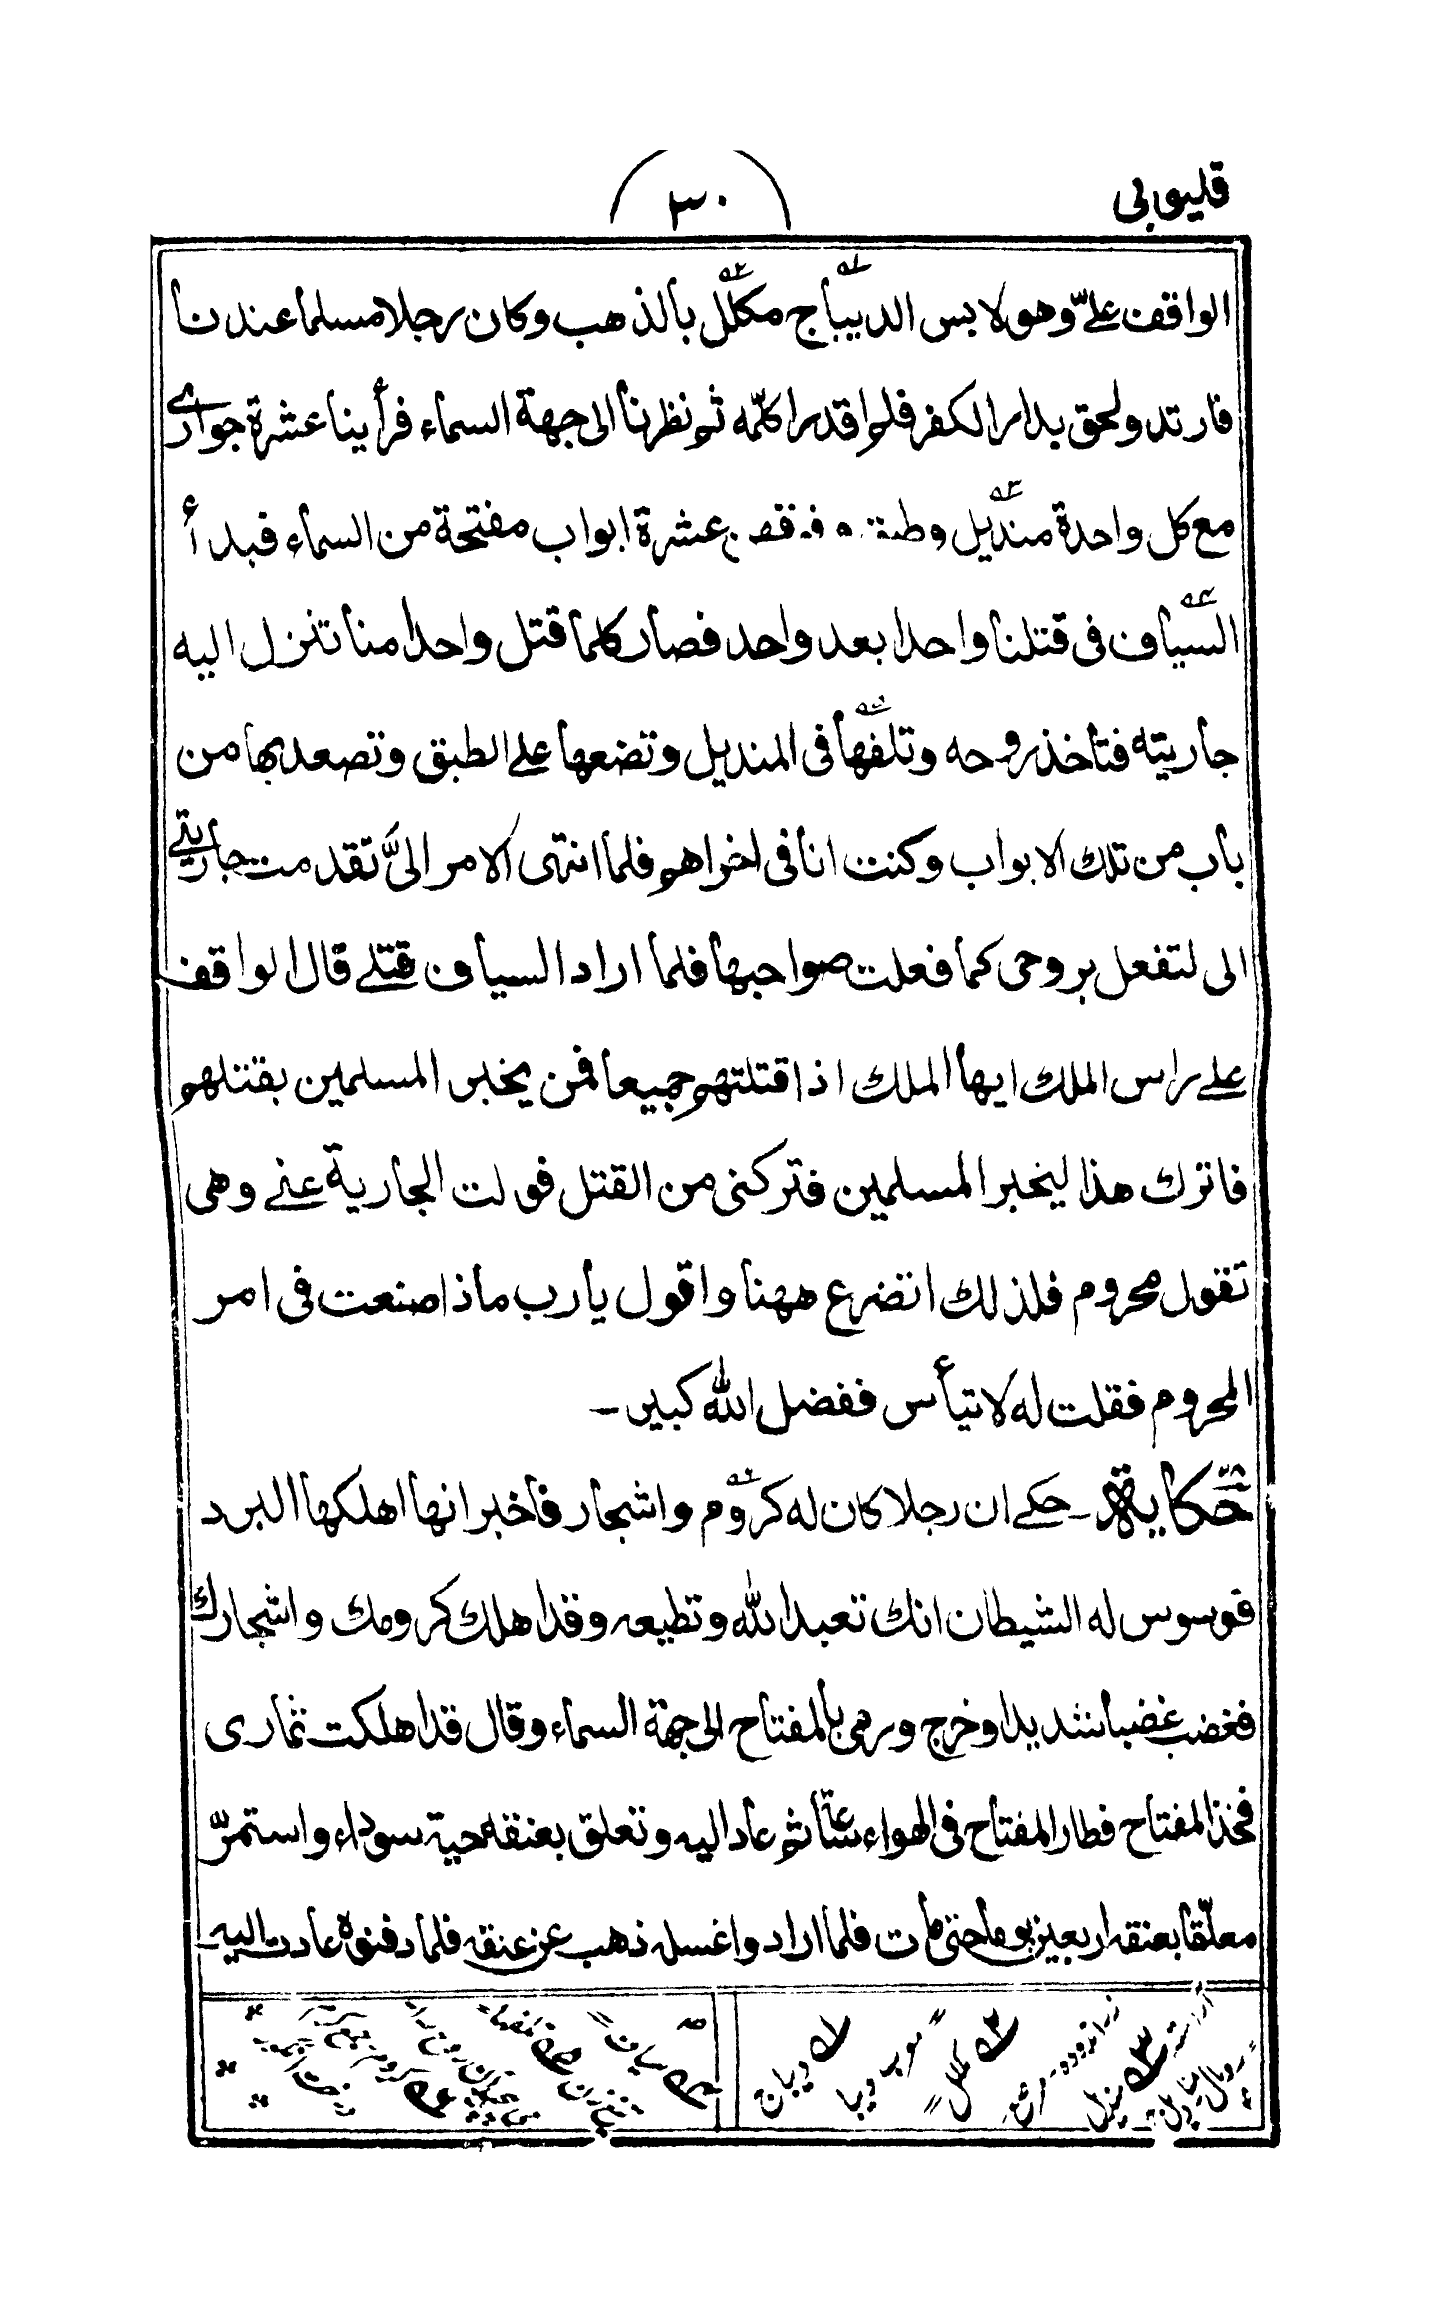 قليوبى
(٣٠)
الواقف علىّ وهو لابس الديباج مكلّل بالذهب وكان رجلا مسلما عندنا
فارتد ولحق بدار الكفر فلم اقدر اكلّمه ثم نظرنا الى جهة السماء فرأينا عشرة جوارى
مع كل واحدة منديل وطبق عشرة ابواب مفتحة من السماء فبدأ
السيّاف فى قتلنا واحدا بعد واحد فصار كلما قتل واحدا منا تنزل اليه
جاريته فتأخذ روحه وتلفّها فى المنديل وتضعها على الطبق وتصعد بها من
باب من تلك الابواب وكنت انا فى اخراهم فلما انتهى الامر الىّ تقدمت جاريتى
الى لتفعل بروحى كما فعلت صواحبها فلما اراد السياف قتلى قال الواقف
على راس الملك ايها الملك اذا قتلتهم جميعا فمن يخبر المسلمين بقتلهم
فاترك هذا ليخبر المسلمين فتركنى من القتل فولت الجارية عنى وهى
تقول محروم فلذلك اتضرع ههنا واقول يارب ماذا صنعت فى امر
المحروم فقلت له لا تيأس ففضل الله كبير ـ
حكاية ـ حكى ان رجلا كان له كروم واشجار فاخبر انها اهلكها البرد
فوسوس له الشيطان انك تعبد الله وتطيعه وقد اهلك كرومك واشجارك
فغضب غضبا شديدا وخرج ورمى بالمفتاح الى جهة السماء وقال قد اهلكت ثمارى
فخذ المفتاح فطار المفتاح فى الهواء ساعة ثم عاد اليه وتعلق بعنقه حية سوداء واستمرّ
معلّقا بعنقه اربعين يوما حتى مات فلما ارادوا غسله ذهب عن عنقه فلما دفنوه عادت اليه